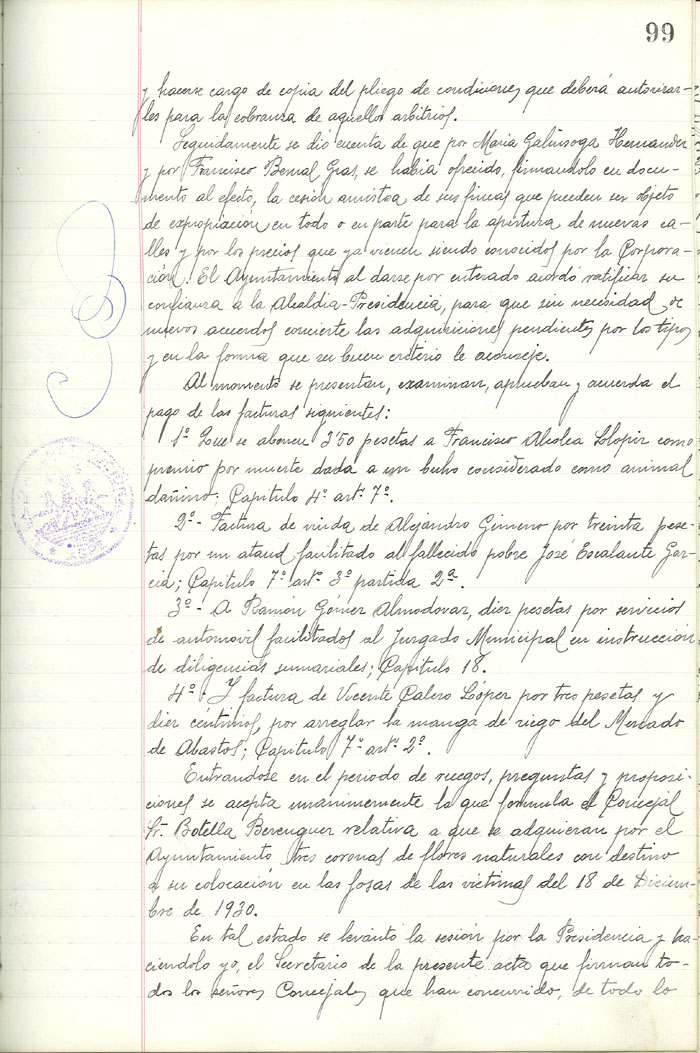 99
y hacerse cargo de copia del pliego de condiciones que deberá autorizar-
les para la cobranza de aquellos arbitrios.
Seguidamente se dió cuenta de que por Maria Galinsoga Hernandez
y por Francisco Bernal Gras, se habia ofrecido, firmandolo en docu-
mento al efecto, la cesión amistosa de sus fincas que pueden ser objeto
de expropiación en todo o en parte para la apertura de nuevas ca-
lles y por los precios que ya vienen siendo conocidos por la Corpora-
ción. El Ayuntamiento al darse por enterado acordó ratificar su
confianza a la Alcaldía-Presidencia, para que sin necesidad de
nuevos acuerdos concierte las adquisiciones pendientes por los tipos
y en la forma que su buen criterio le aconseje.
Al momento se presentan, examinan, aprueban y acuerda el
pago de las facturas siguientes:
1º Que se abonen 3'50 pesetas a Francisco Alcolea como
premio por muerte dada a un buho considerado como animal
dañino; Capitulo 4º artº 7º.
2º- Factura de viuda de Alejandro Gimeno por treinta pese-
tas por un ataud facilitado al fallecido pobre José Escalante Gar-
cia; Capitulo 7º artº 3º partida 2ª.
3º- A Ramón Gómez Almodovar, diez pesetas por servicios
de automovil facilitados al Juzgado Municipal en instrucción
de diligencias sumariales; Capitulo 18.
4º- Y factura de Vicente Calero López por tres pesetas y
diez céntimos, por arreglar la manga de riego del Mercado
de Abastos; Capitulo 7º artº 2º.
Entrandose en el periodo de ruegos, preguntas y proposi-
ciones se acepta unanimemente la que formula el Concejal
Sr. Botella Berenguer relativa a que se adquieran por el
Ayuntamiento tres coronas de flores naturales con destino
a su colocación en las fosas de las victimas del 18 de Diciem-
bre de 1930.
En tal estado se levantó la sesión por la Presidencia y ha-
ciendolo yo, el Secretario de la presente acta que firman to-
dos los señores Concejales que han concurrido, de todo lo